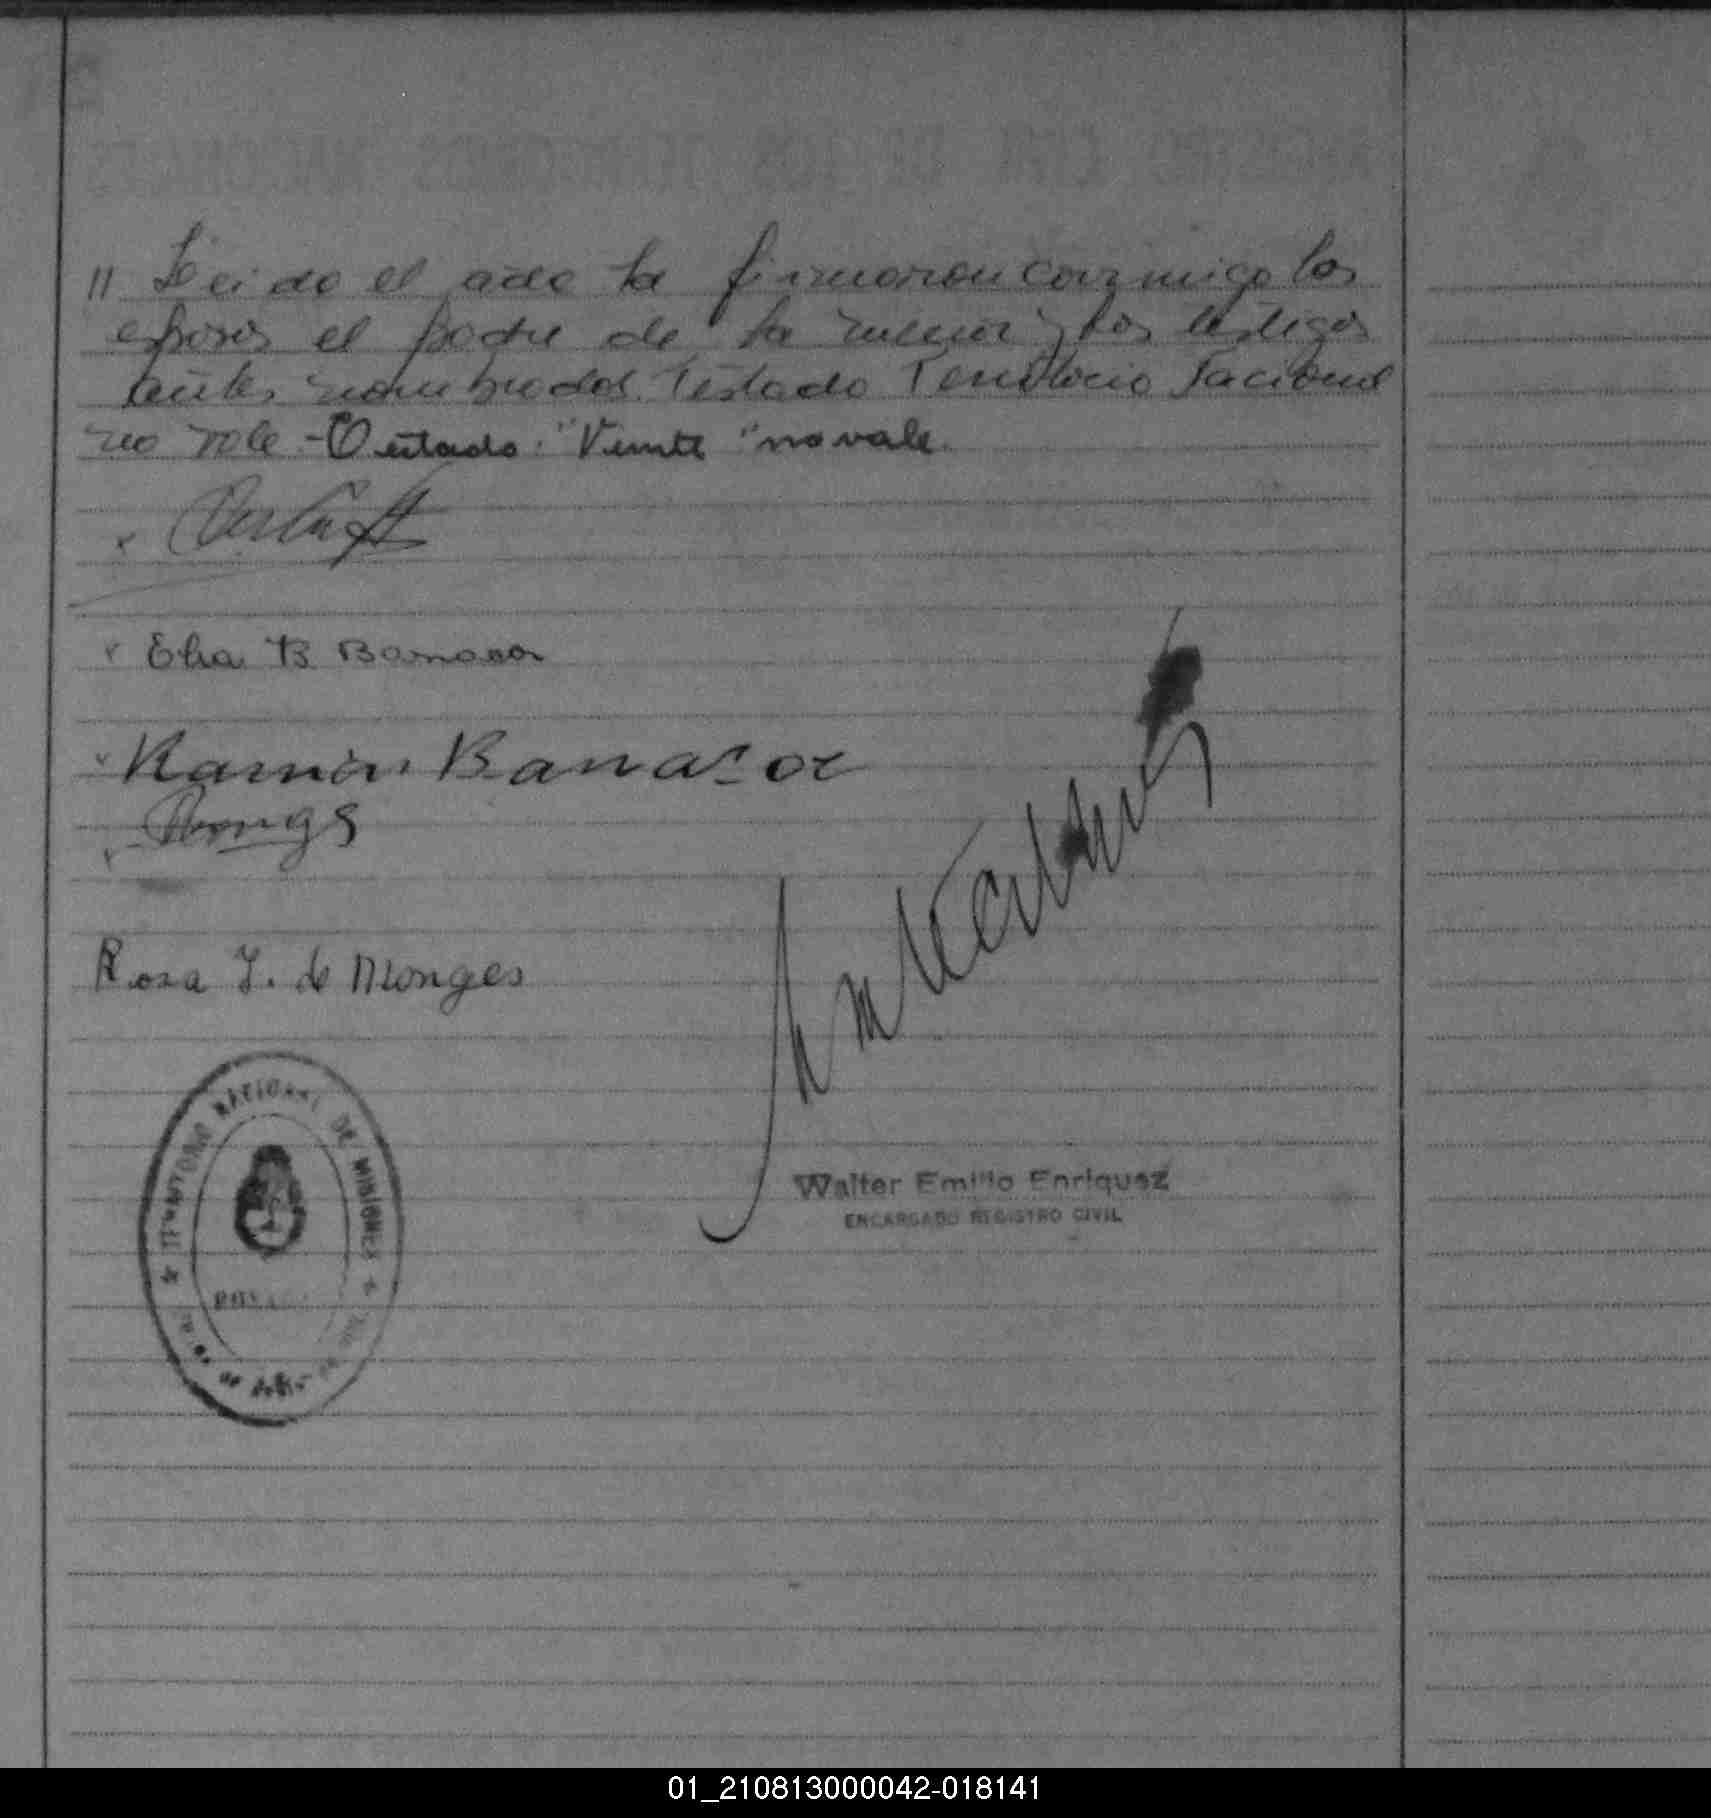 " Leido el acta la firmaron conmigo los
esposos el padre de la menor y los testigos
antes nombrados. Testado Territorio Nacional
no vale - Testado: "Veinte" no vale.
Elia B Barrasor
Ramón Barrasor
Monges
Rosa Y. de Monges
TERRITORIO NACIONAL DE MISIONES
Walter Emilio Enriquez
ENCARGADO REGISTRO CIVIL
01_210813000042-018141